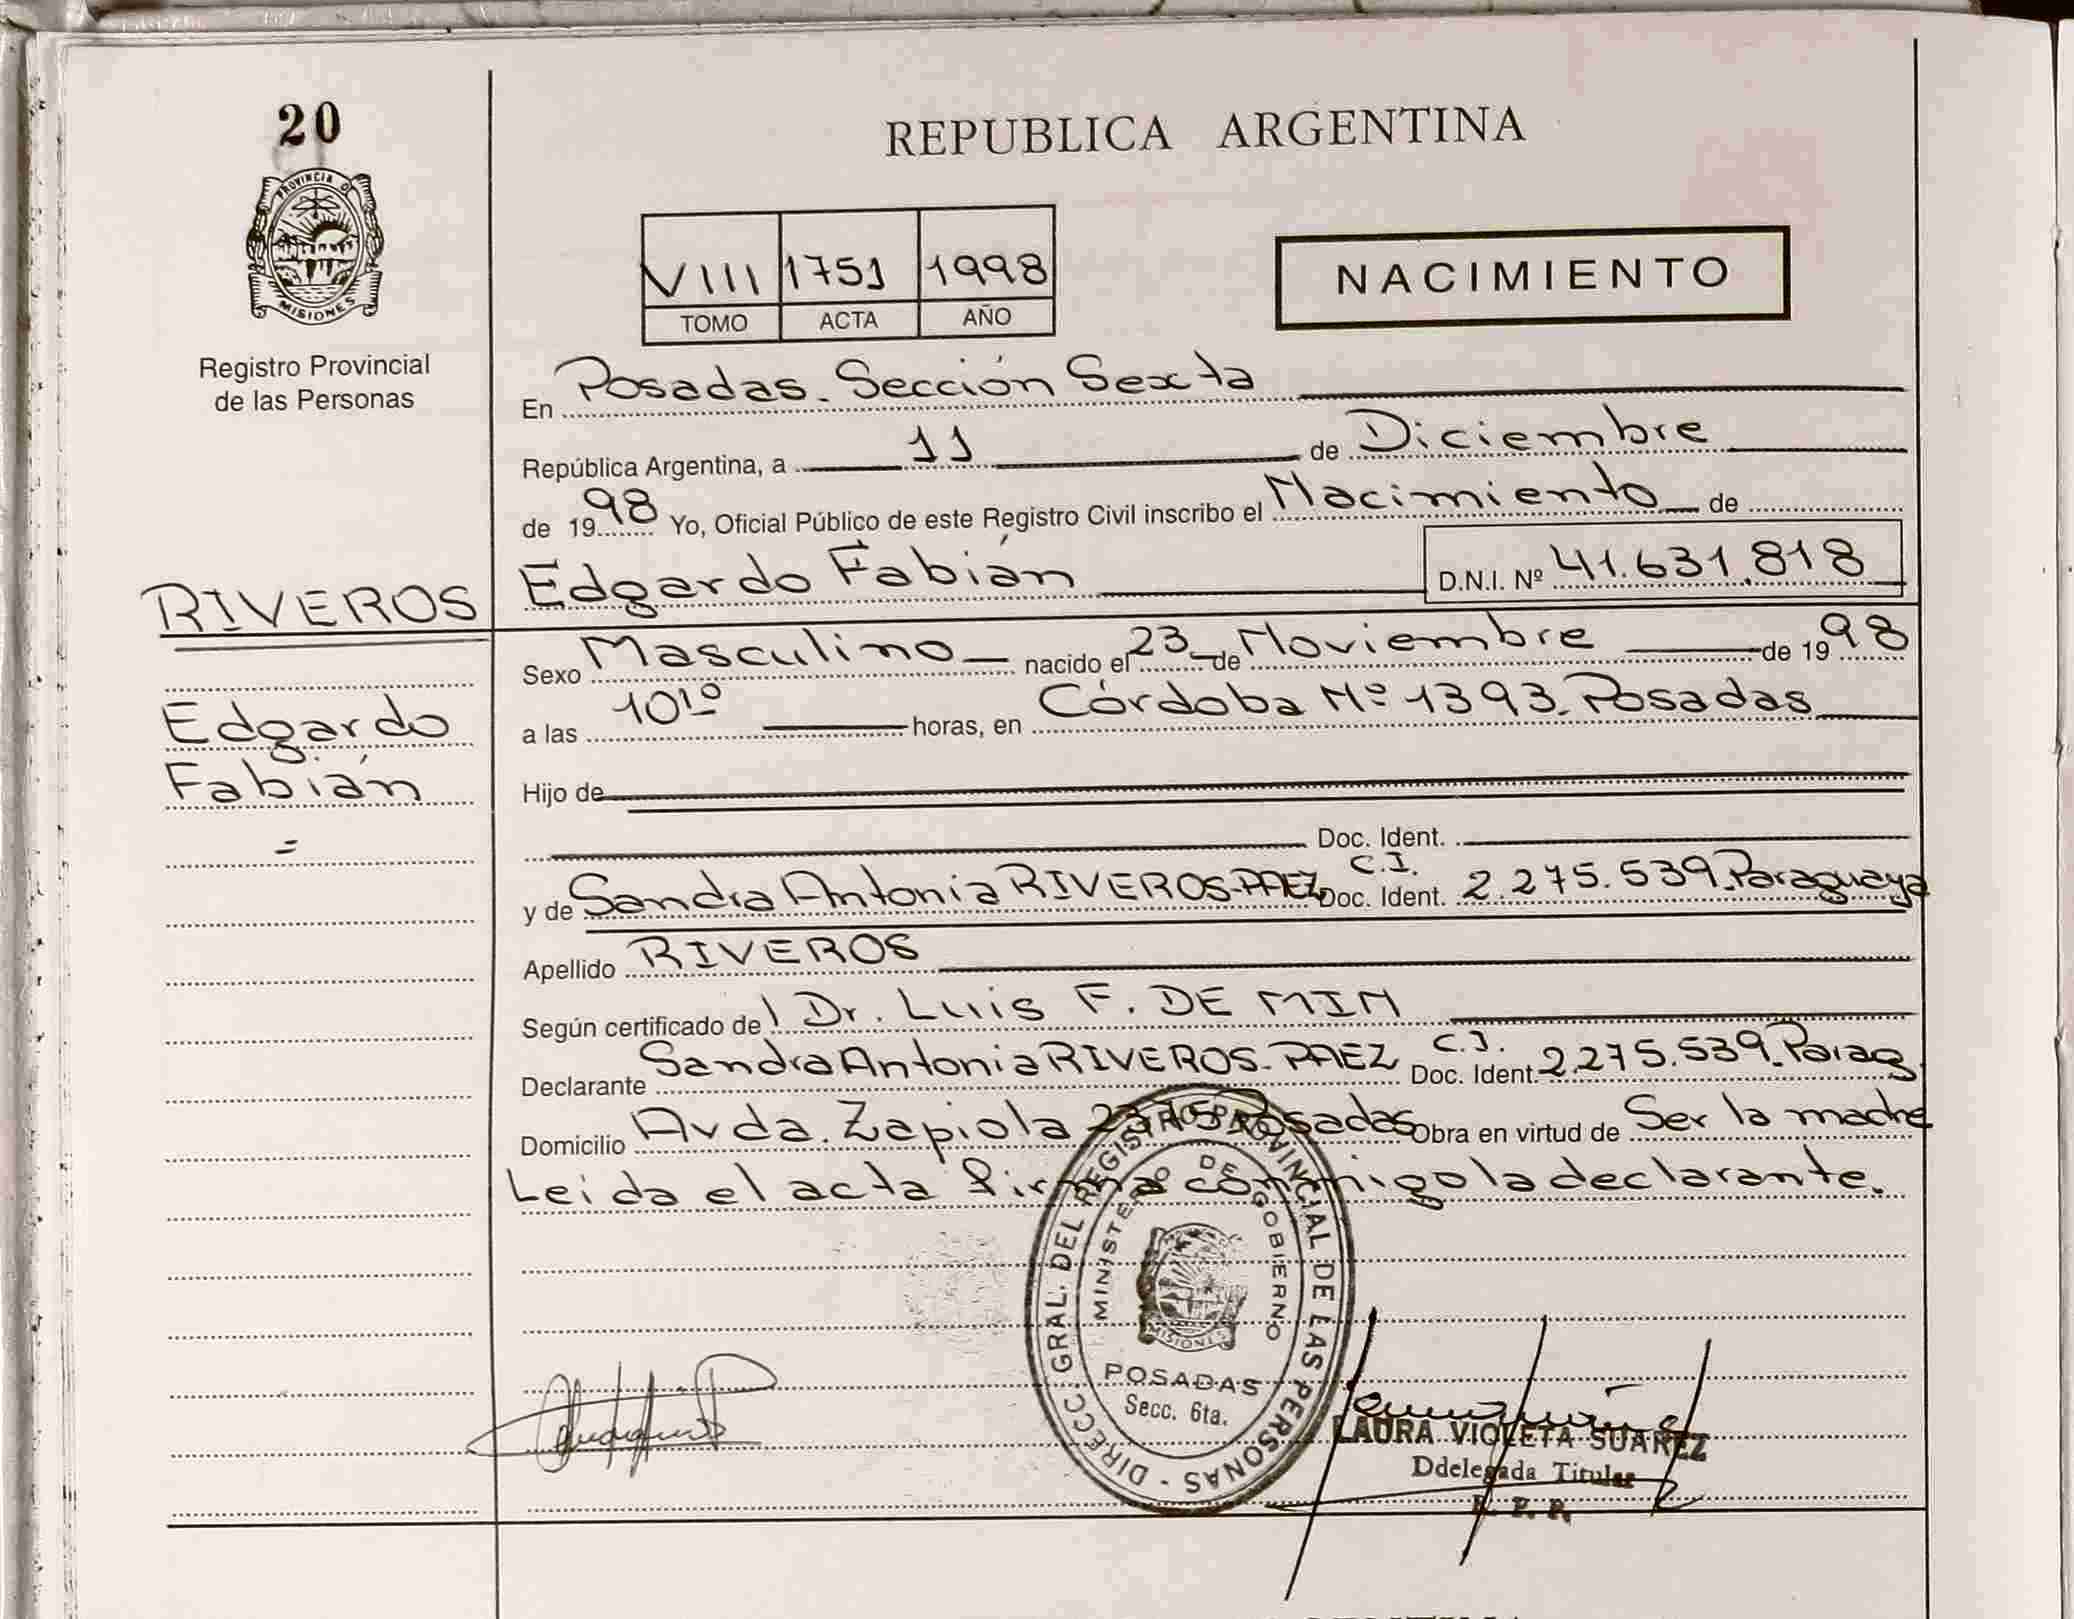 20
PROVINCIA D
MISIONES
Registro Provincial
de las Personas
RIVEROS
Edgardo
Fabián
=
REPUBLICA ARGENTINA
VIII 1751 1998
TOMO ACTA AÑO
NACIMIENTO
En Posadas. Sección Sexta
República Argentina, a 11 de Diciembre
de 1998 Yo, Oficial Público de este Registro Civil inscribo el Nacimiento de
Edgardo Fabián D.N.I. Nº 41.631.818
Sexo Masculino nacido el 23 de Noviembre de 1998
a las 10 horas, en Córdoba Nº 1393. Posadas
Hijo de
Doc. Ident.
y de Sandra Antonia RIVEROS-PAEZ C.I. Doc. Ident. 2.275.539. Paraguaya
Apellido RIVEROS
Según certificado del Dr. Luis F. DE MIN
Declarante Sandra Antonia RIVEROS-PAEZ C.I. Doc. Ident. 2.275.539. Parag.
Domicilio Avda. Zapiola Posadas Obra en virtud de Ser la madre
Leida el acta firma conmigo la declarante.
DIRECC. GRAL. DEL REGISTRO PROVINCIAL DE LAS PERSONAS -
MINISTERIO DE GOBIERNO
MISIONES
POSADAS
Secc. 6ta.
LAURA VIOLETA SUAREZ
Ddelegada Titular
R. P. P.